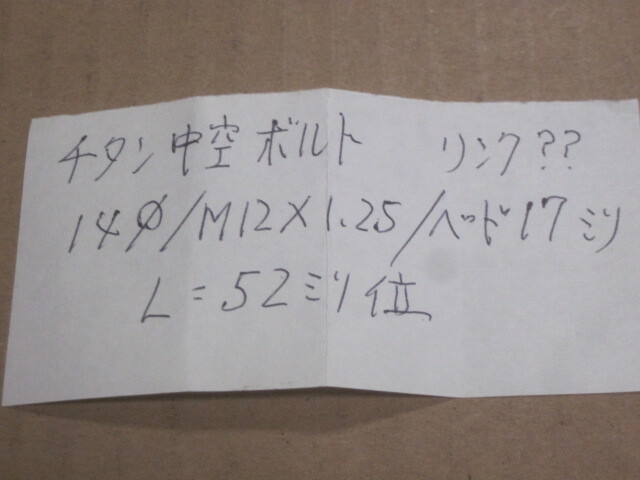 チタン中空ボルト リンク??
14φ/M12×1.25/ヘッド17ミリ
L=52ミリ位